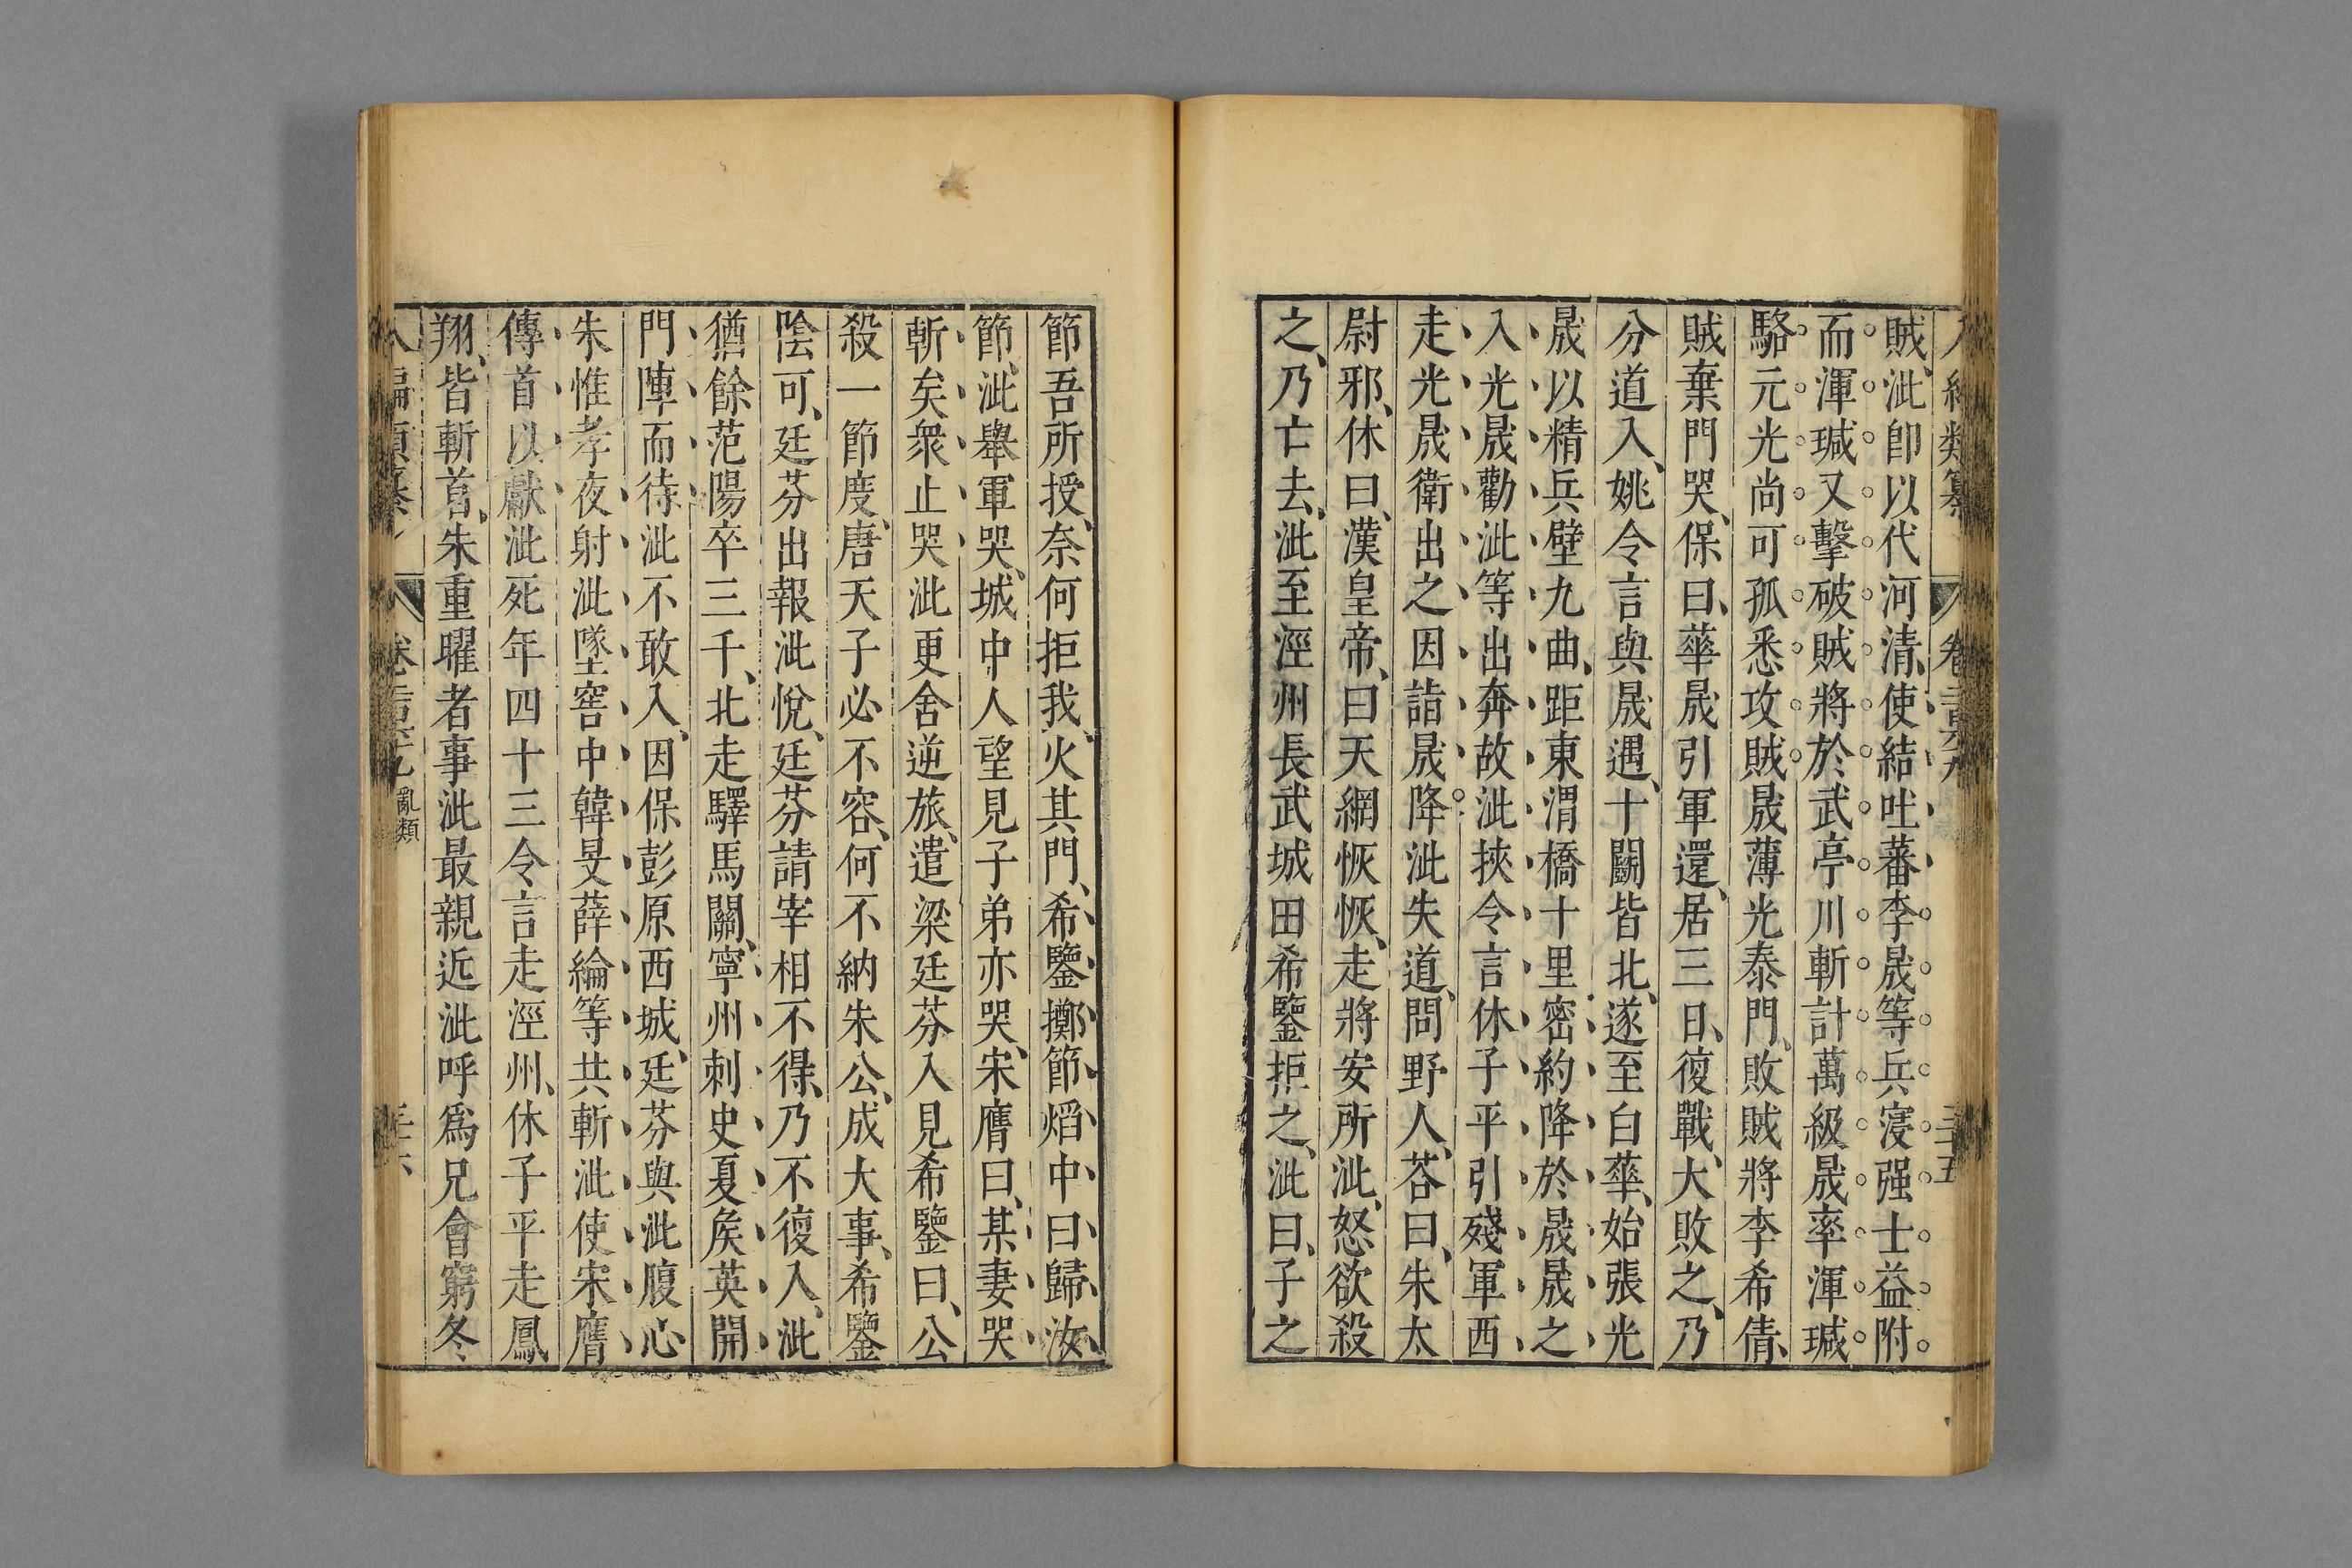 賊、泚卽以代河清、使結吐蕃、李晟等兵寖强士益附
而渾瑊又擊破賊將於武亭川斬計萬級晟率渾瑊
駱元光尚可孤悉攻賊晟薄光泰門、敗賊將李希倩、
賊棄門哭、保曰、華晟引軍還、居三日、復戰、大敗之、乃
分道入、姚令言與晟遇、十鬭皆北、遂至白華、始張光
晟以精兵壁九曲、距東渭橋十里密約降於晟晟之
入光晟勸泚等出奔故泚挾令言休子平引殘軍西
走光晟衛出之因詣晟降泚失道、問野人、荅曰、朱太
尉邪、休曰、漢皇帝、曰天網恢恢、走將安所泚、怒欲殺
之、乃亡去、泚至涇州長武城田希鑒拒之、泚曰、子之
節吾所授、奈何拒我、火其門、希鑒擲節熖中曰歸汝
節、泚舉軍哭、城中人望見子弟亦哭、宋膺曰、某妻哭
斬矣衆止哭泚更舍逆旅、遣梁廷芬入見希鑒曰、公
殺一節度、唐天子必不容、何不納朱公、成大事、希鑒
陰可、廷芬出報泚悅、廷芬請宰相不得、乃不復入、泚
猶餘范陽卒三千、北走驛馬關、寧州刺史夏矦英開
門陣而待泚不敢入、因保彭原西城、廷芬與泚腹心
朱惟孝夜射泚墜窖中韓旻薛綸等共斬泚使宋膺
傳首以獻泚死年四十三令言走涇州、休子平走鳳
翔、皆斬首、朱重曜者事泚最親近泚呼爲兄會窮冬
亂類